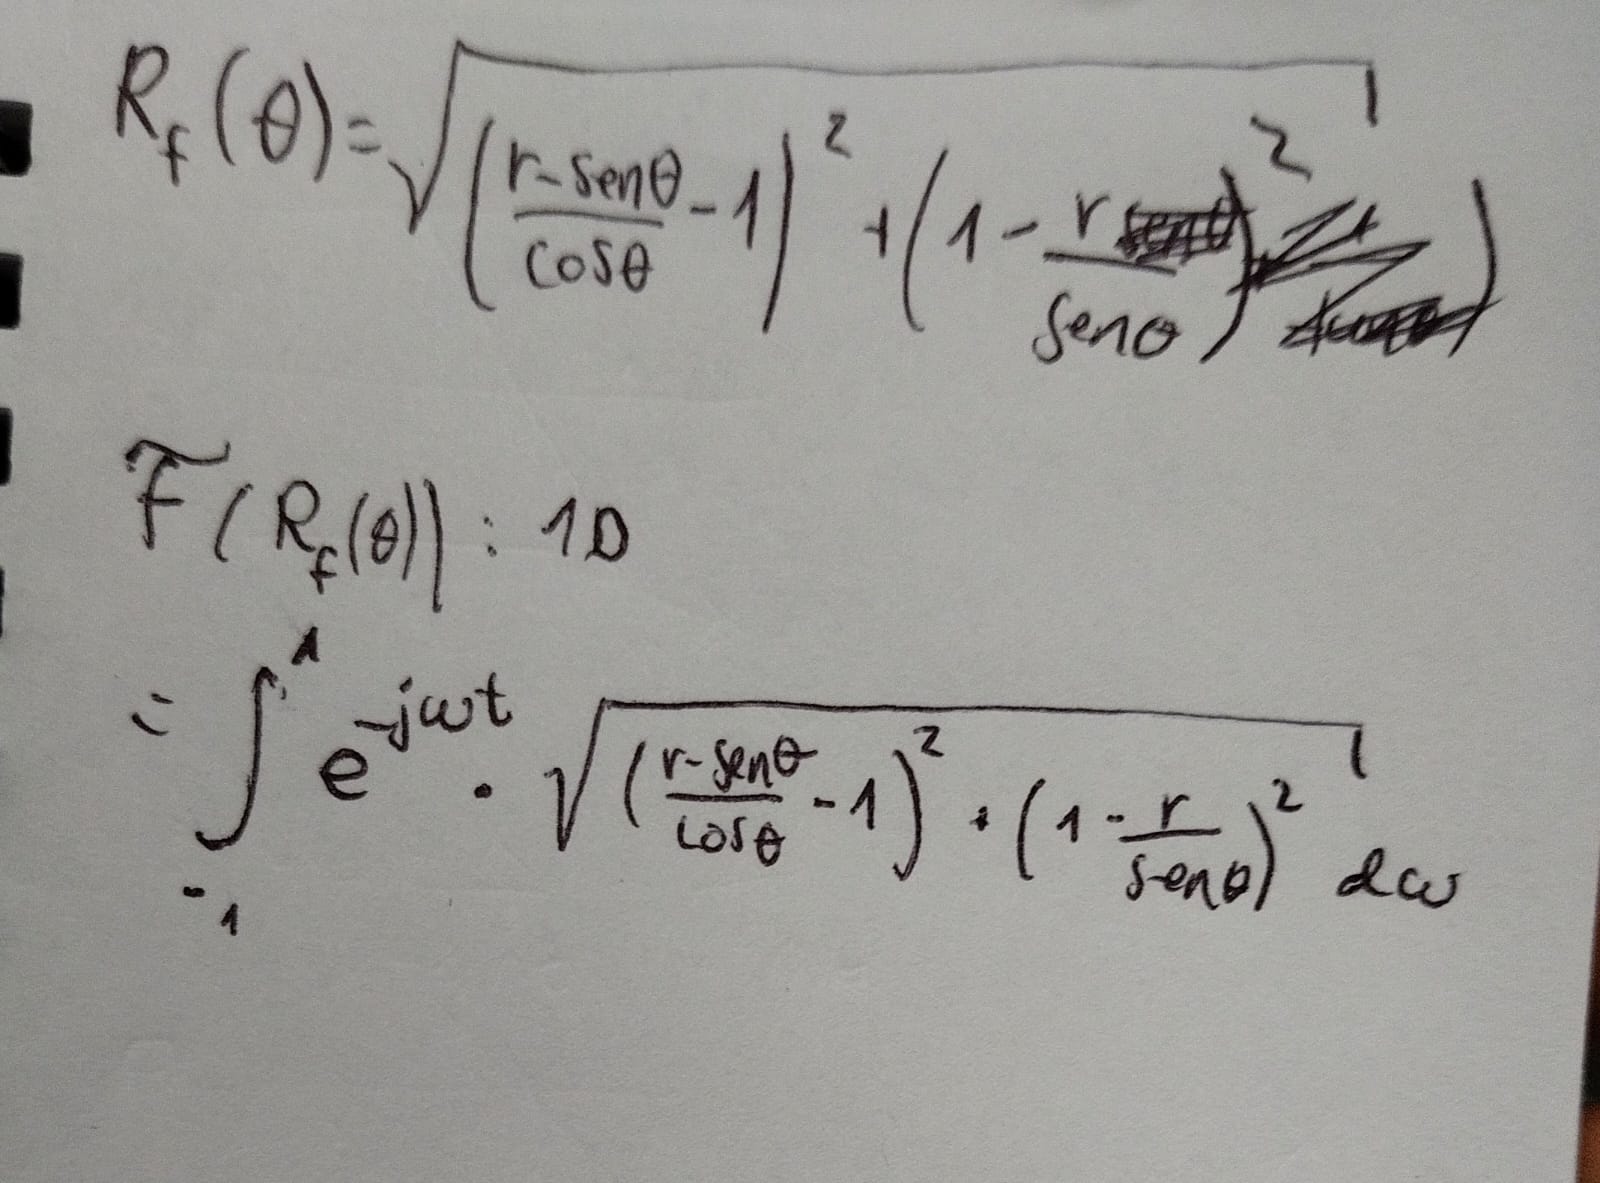 R_f(θ)=√((r-senθ/cosθ - 1)² + (1 - r/senθ)²)
F(R_f(θ)): 1D
= ∫_{-1}^{1} e^{-jωt} · √((r-senθ/cosθ - 1)² + (1 - r/senθ)²) dω